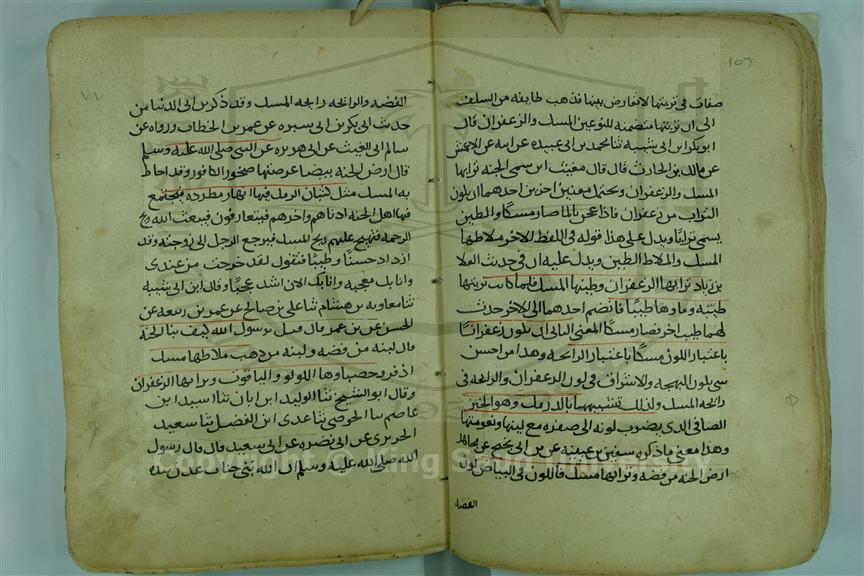 صفات في تربتها لا تعارض بينها فذهب طايفه من السلف
الى ان تربتها متضمنه للنوعين المسك والزعفران قال
ابو بكر بن ابى شيبه ثنا محمد بن ابى عبيده عن ابيه عن الاعمش
عن مالك بن الحارث قال قال مغيث ابن سمى الجنه ترابها
المسك والزعفران ويحتمل معنين اخرين احدهما ان يكون
التراب من زعفران فاذا عجن بالما صار مسكا والطين
يسمى ترابا ويدل على هذا قوله فى اللفظ الاخر ملاطها
المسك والملاط الطين ويدل عليه ان فى حديث العلا
بن زياد ترابها الزعفران وطينها المسك فلما كانت تربتها
طيبه وماوها طيبا فانضم احدهما الى الاخر حدث
لهما طيب اخر فصار مسكا المعنى الثانى ان يكون زعفرانا
باعتبار اللون مسكا باعتبار الرايحه وهذا من احسن
شى يكون البهجه والاشراق فى لون الزعفران والرايحه فى
رايحه المسك وكذلك تشبيهها بالدرمك وهو الخبز
الصافى الذى يضرب لونه الى صفره مع لينها ونعومتها
وهذا معنى ما ذكره سفين بن عيينه عن بن ابى نجيح عن مجاهد
ارض الجنه من فضه وترابها مسك فاللون فى البياض لون
الفضه
الفضه والرايحه رايحه المسك وقد ذكر بن ابى الدنيا من
حديث ابى بكر بن ابى سبره عن عمر بن الخطاف ورواه عن
سالم ابى الغيث عن ابى هريره عن النبى صلى الله عليه وسلم
قال ارض الجنه بيضا عرصتها صخور الكافور وقد احاط
به المسك مثل كثبان الرمل فيها انهار مطرده فيجتمع
فيها اهل الجنه ادناهم واخرهم فيتعارفون فيبعث الله ريح
الرحمه فتهيج عليهم ريح المسك فيرجع الرجل الى زوجته وقد
ازداد حسنا وطيبا فتقول لقد خرجت من عندى
وانا بك معجبه وانا بك الان اشد عجبا وقال ابن ابى شيبه
ثنا معاويه بن هشام ثنا على بن صالح عن عمر بن ربيعه عن
الحسن عن بن عمر قال قيل يرسول الله كيف بنا الجنه
قال لبنه من فضه ولبنه من ذهب ملاطها مسك
اذفر وحصباوها اللولو والياقوت وترابها الزعفران
وقال ابو الشيخ ثنا الوليد ابن ابان ثنا اسيد ابن
عاصم ثنا الحوضى ثنا عدى ابن الفضل ثنا سعيد
الجريرى عن ابى نضره عن ابى سعيد قال قال رسول
الله صلى الله عليه وسلم ان الله بنى جنات عدن بيده